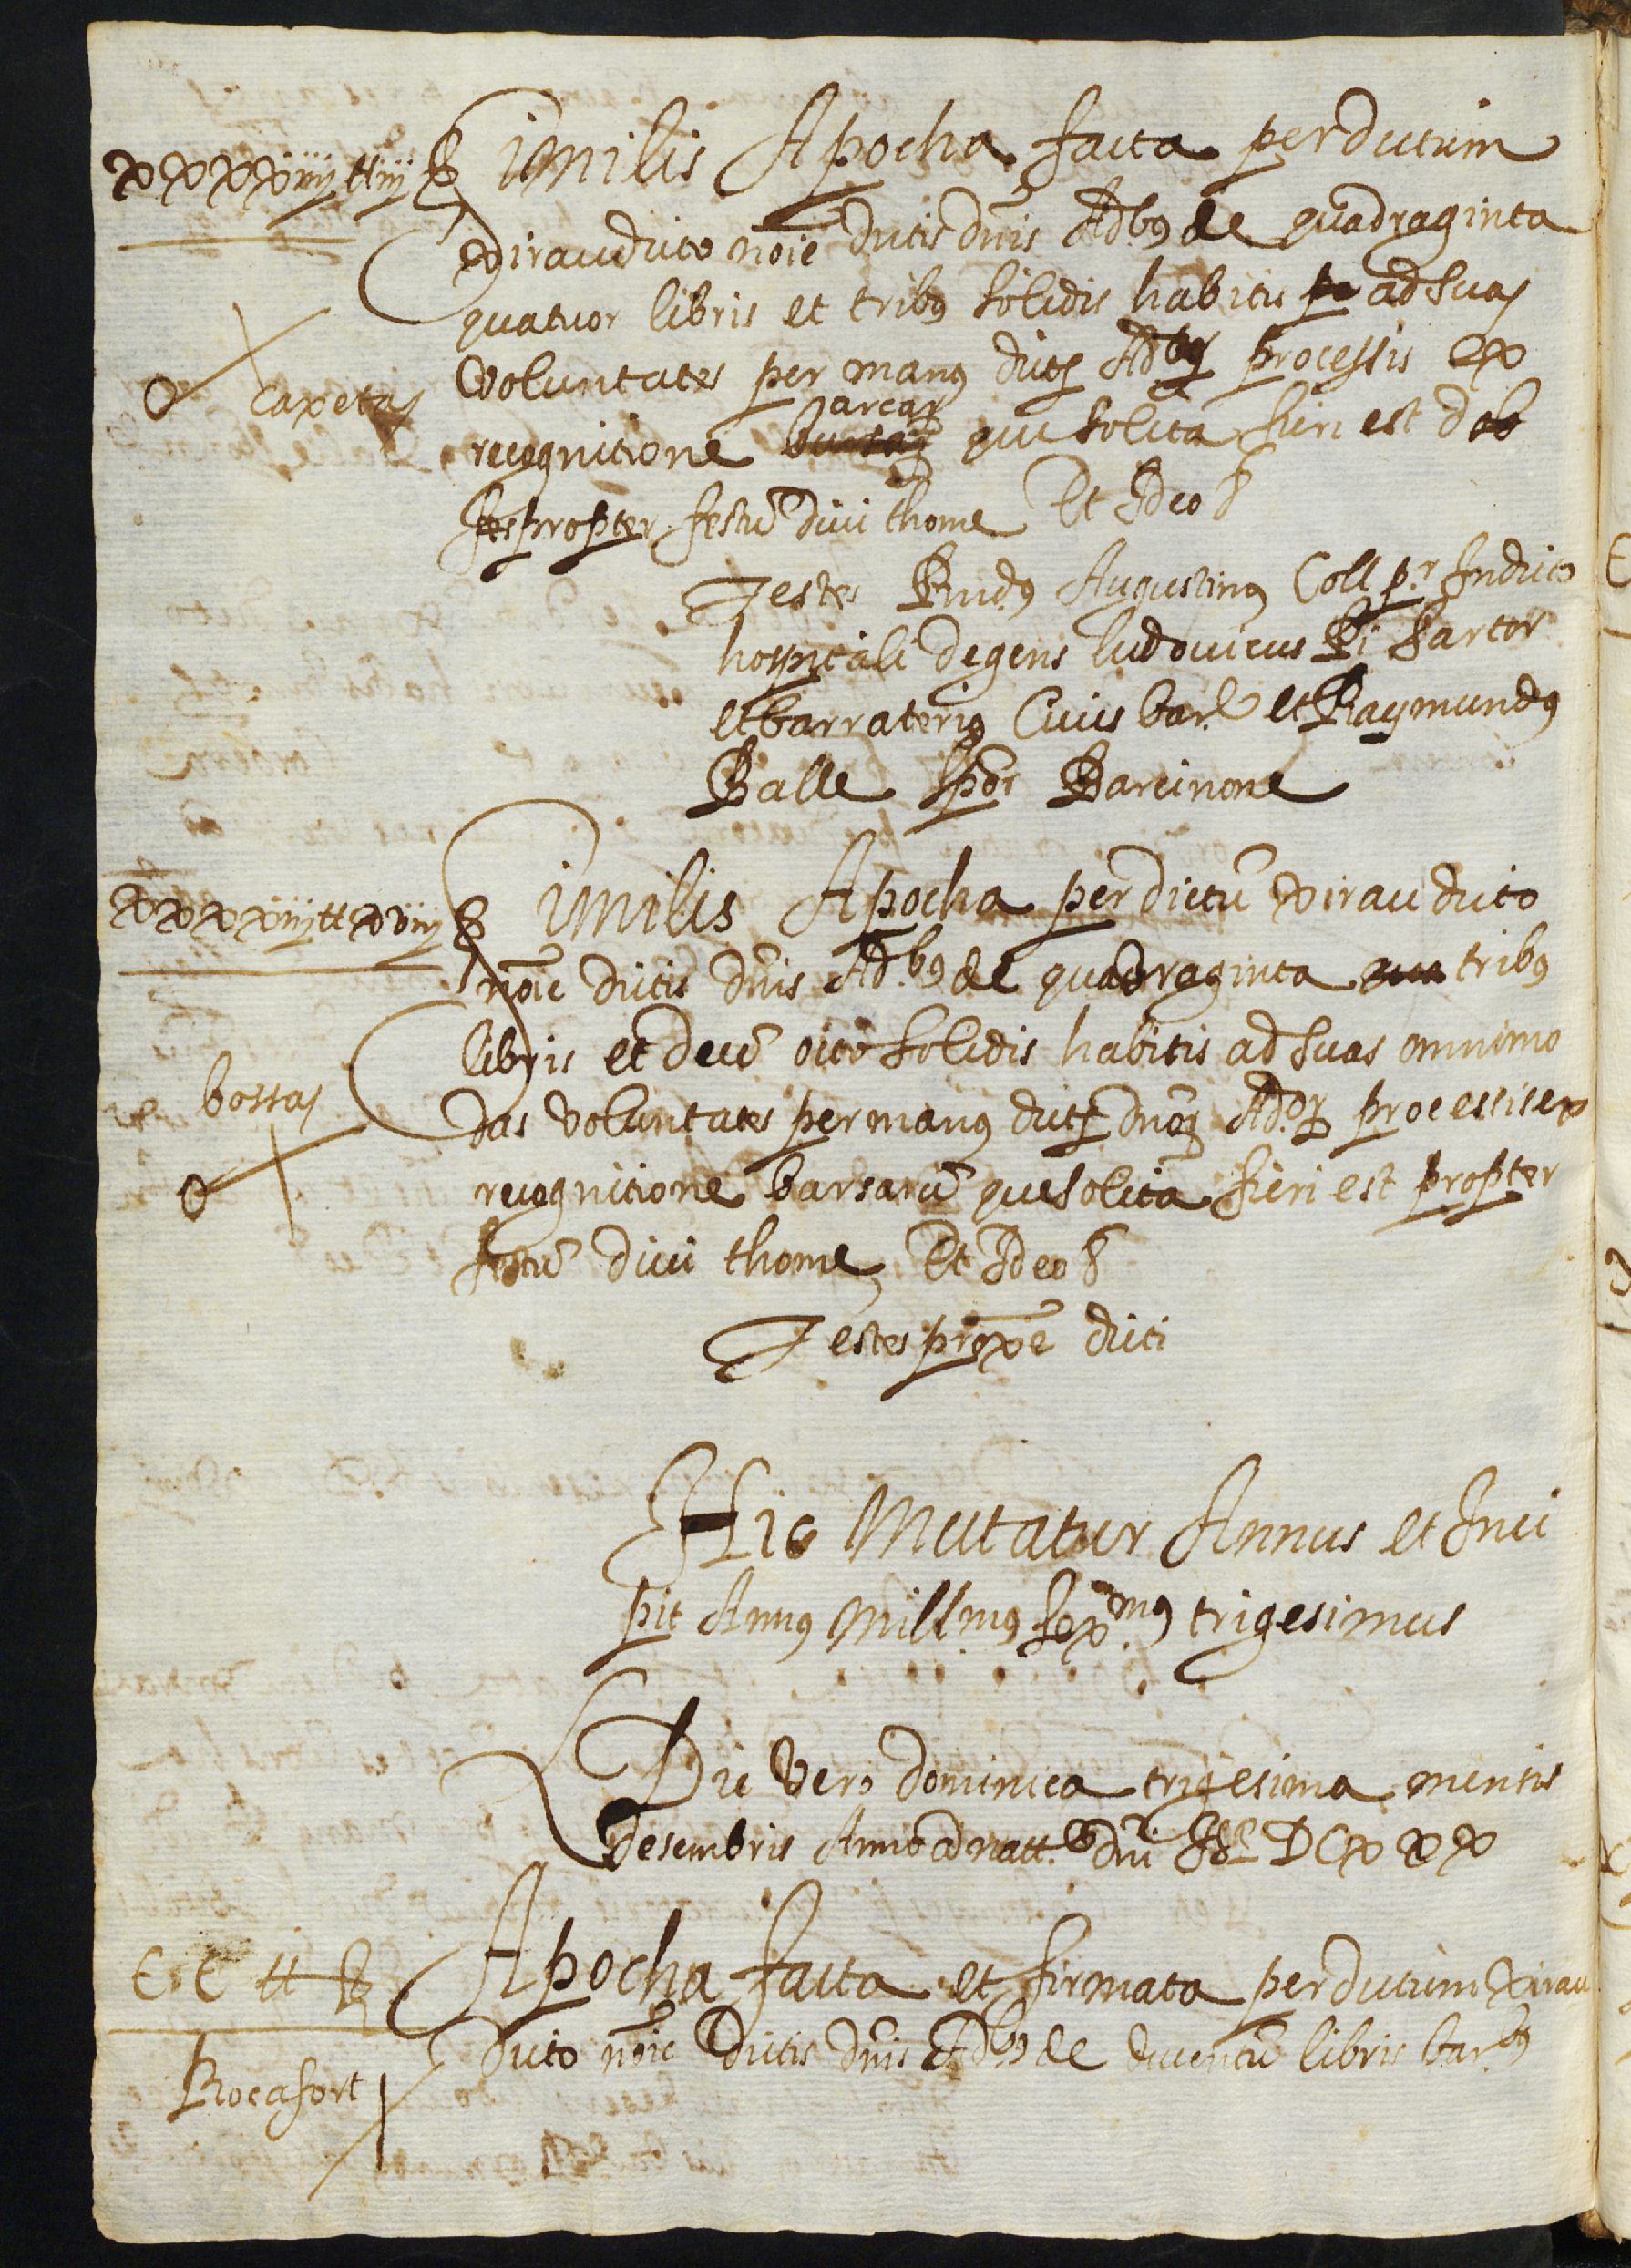 xxxxiiij tt iij ß Similis Apocha facta per dictum
Xirau dicto noīe dictis dnīs Adb9 de quadraginta
quatuor libris et trib9 solidis habitis pe ad suas
Caxetas
voluntates per man9 dictɋ Adbɋ processis ex
arcaɋ
recognitione bursaɋ que solita fieri est dob
fes propter festū divi thome Et Ideo &
Testes Rnd9 Augustin9 Coll pr. In dicto
hospitali degens ludovicus Pi sartor
et barrateri9 Civis bar. et Raymund9
Balle scpōr Barcinone
xxxxiij tt xviij ß Similis Apocha per dictū Xirau dicto
noīe dictis dnīs Ad.b9 de quadraginta qua tribus
libris et decē octo solidis habitis ad suas omnimo
bossas
das voluntates per man9 dictɋ dnōɋ Ad.oɋ processis ex
recognitione barsarū que solita fieri est propter
festū divi thome Et Ideo &
Testes proxē dicti
Hic Mutatur Annus et Inci
pit Ann9 Mill.m9 sex.m9 trigesimus
Die vero dominica trigesima mentis
desembris Anno a natt.e dnī M DCxxx
CC tt ß Apocha facta et firmata per dictum Xirau
dicto noīe dictis dnīs Adb9 de ducentū libris bar.b9
Rocafort